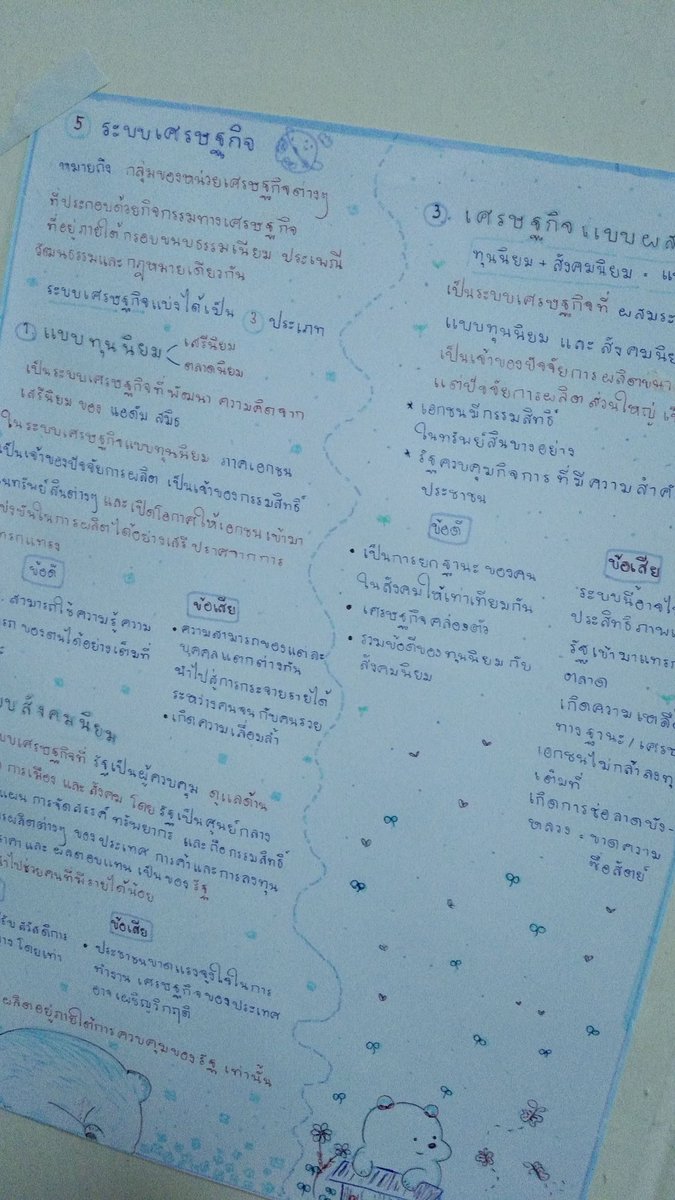 5 ระบบเศรษฐกิจ
หมายถึง กลุ่มของหน่วยเศรษฐกิจต่างๆ
ที่ประกอบด้วยกิจกรรมทางเศรษฐกิจ
ที่อยู่ภายใต้กรอบขนบธรรมเนียม ประเพณี
วัฒนธรรมและกฎหมายเดียวกัน
ระบบเศรษฐกิจแบ่งได้เป็น 3 ประเภท
1 แบบทุนนิยม
เสรีนิยม
ตลาดนิยม
เป็นระบบเศรษฐกิจที่พัฒนา ความคิดจาก
เสรีนิยม ของ แอดัม สมิธ
ในระบบเศรษฐกิจแบบทุนนิยม ภาคเอกชน
เป็นเจ้าของปัจจัยการผลิต เป็นเจ้าของกรรมสิทธิ์
ทรัพย์สินต่างๆ และเปิดโอกาสให้เอกชนเข้ามา
ในการผลิตได้อย่างเสรี ปราศจากการ
แทรกแซง
ข้อดี
สามารถใช้ความรู้ความ
ของตนได้อย่างเต็มที่
ข้อเสีย
• ความสามารถของแต่ละ
บุคคลแตกต่างกัน
นำไปสู่การกระจายรายได้
ระหว่างคนจนกับคนรวย
• เกิดความเลื่อมล้ำ
สังคมนิยม
เศรษฐกิจที่ รัฐเป็นผู้ควบคุม ดูแลด้าน
การเมือง และ สังคม โดย รัฐเป็นศูนย์กลาง
แผน การจัดสรรค์ ทรัพยากร และ ถือกรรมสิทธิ์
ผลิตต่างๆ ของประเทศ การค้าและการลงทุน
และ ผลตอบแทน เป็นของ รัฐ
ไปช่วยคนที่มีรายได้น้อย
สวัสดิการ
โดยเท่า
ข้อเสีย
• ประชาชนขาดแรงจูงใจในการ
ทำงาน เศรษฐกิจของประเทศ
อาจเผชิญวิกฤติ
ผลิตอยู่ภายใต้การควบคุมของ รัฐ เท่านั้น
3. เศรษฐกิจแบบผส
ทุนนิยม + สังคมนิยม =
เป็นระบบเศรษฐกิจที่ ผสมระ
แบบทุนนิยม และ สังคมนิย
เป็นเจ้าของปัจจัยการผลิตขนา
แต่ปัจจัยการผลิตส่วนใหญ่
* เอกชนมีกรรมสิทธิ์
ในทรัพย์สินบางอย่าง
* รัฐควบคุมกิจการที่มีความสำคั
ประชาชน
ข้อดี
• เป็นการยกฐานะ ของคน
ในสังคมให้เท่าเทียมกัน
• เศรษฐกิจคล่องตัว
• รวมข้อดีของทุนนิยม กับ
สังคมนิยม
ข้อเสีย
ระบบนี้อาจไ
ประสิทธิภาพเ
รัฐเข้ามาแทรก
ตลาด
เกิดความเหลื
ทางฐานะ/เศรษ
เอกชนไม่กล้าลงทุ
เต็มที่
เกิดการฉ้อลาดบัง-
หลวง = ขาดความ
ซื่อสัตย์